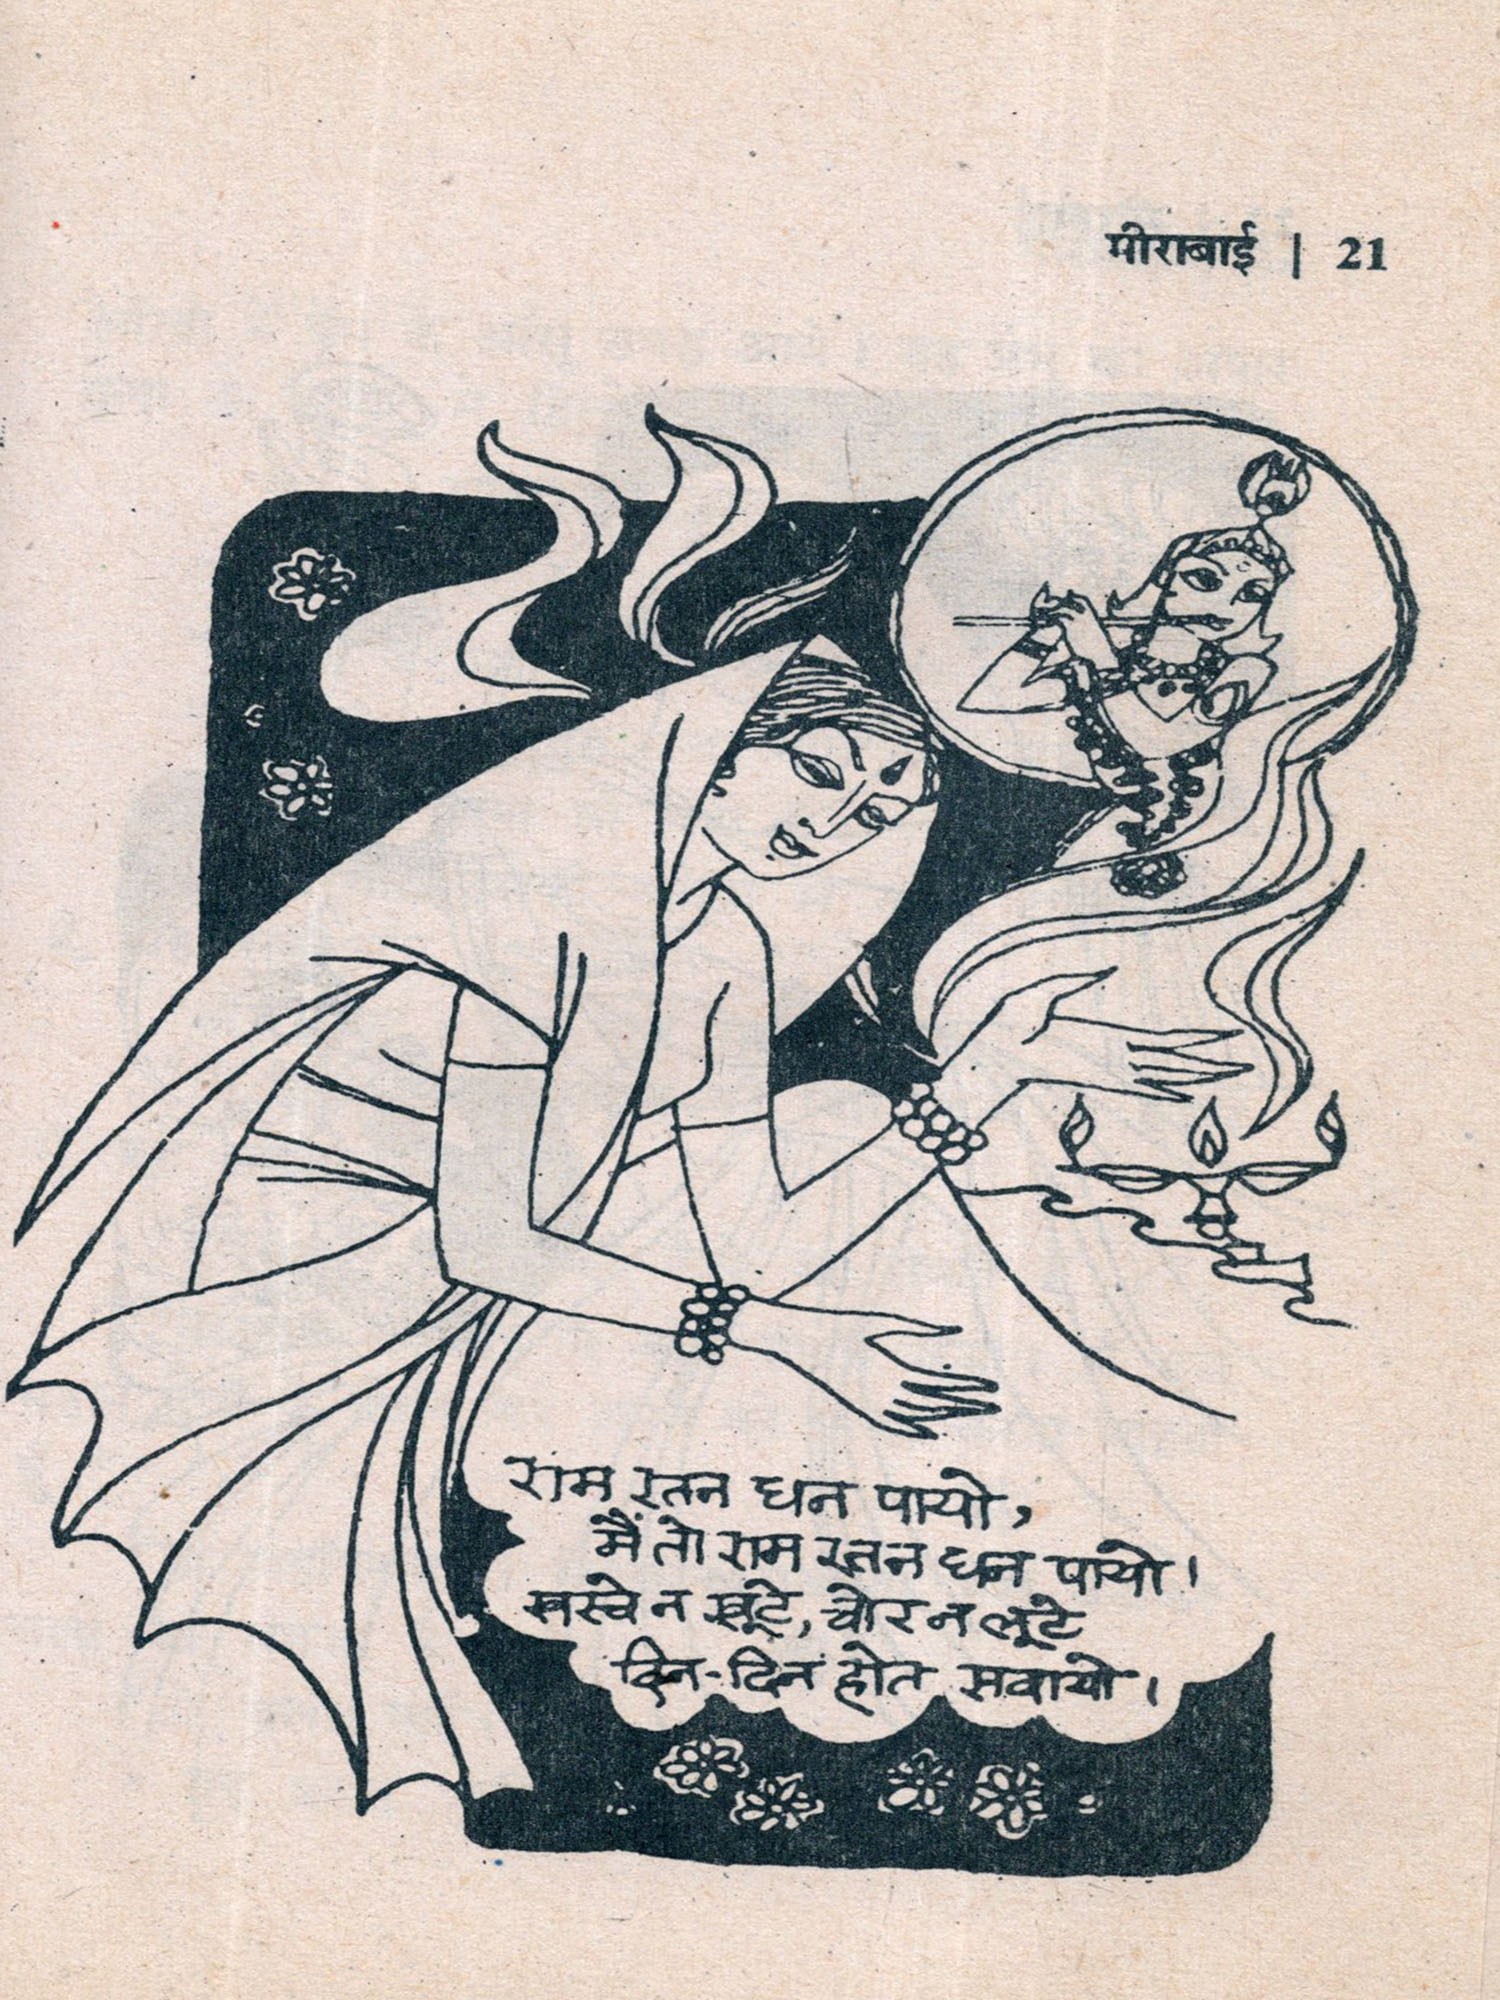 मीराबाई | 21
राम रतन धन पायो,
मैं तो राम रतन धन पायो।
खरचे न खूटे, चोर न लूटे
दिन-दिन होत सवायो।